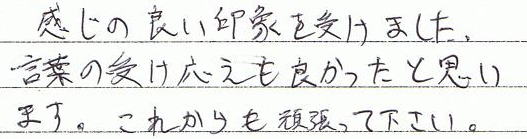 感じの良い印象を受けました、
言葉の受け応えも良かったと思い
ます。これからも頑張って下さい。